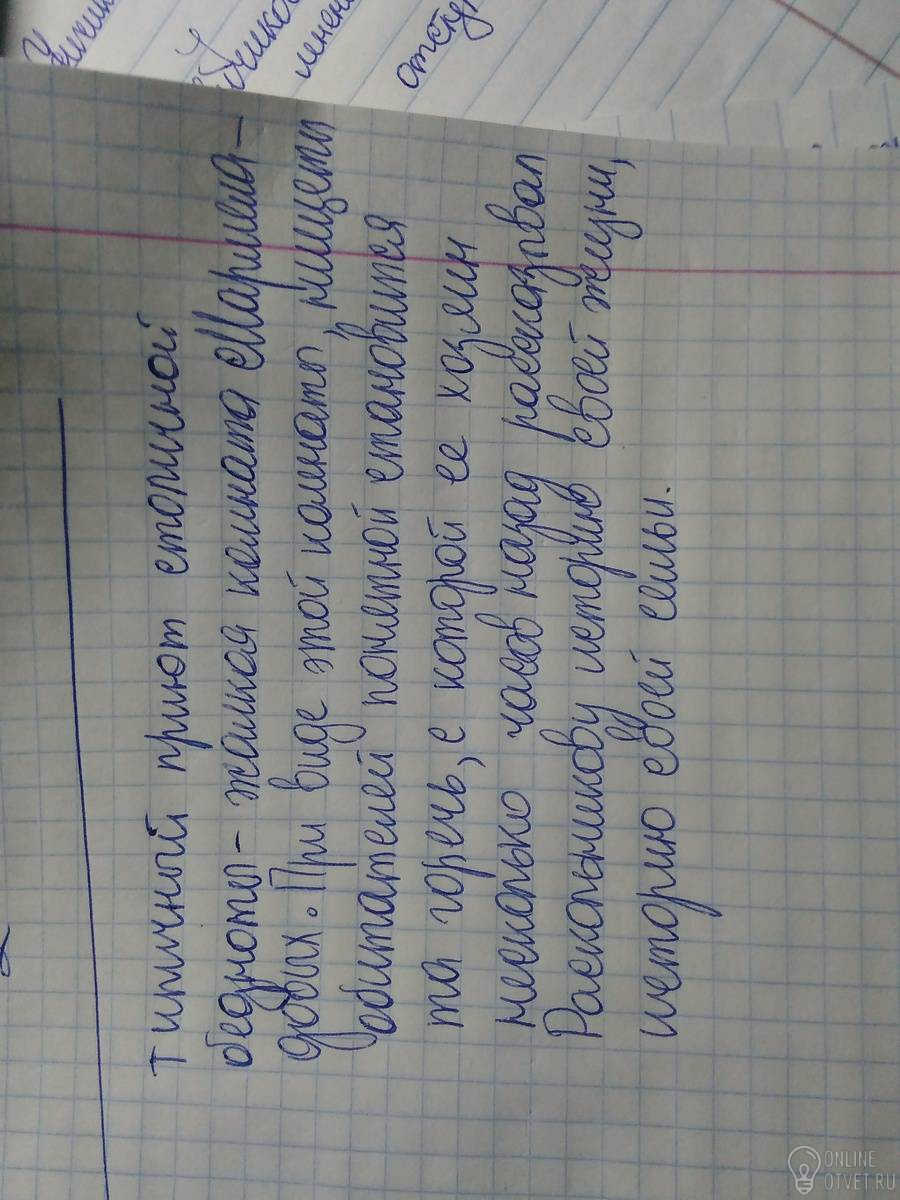 Типичный приют столичной
бедноты - жалкая комната Мармела-
довых. При виде этой комнаты, нищеты
обитателей понятной становится
та горечь, с которой ее хозяин
несколько часов назад рассказывал
Раскольникову историю своей жизни,
историю своей семьи.
ONLINE
OTVET.RU